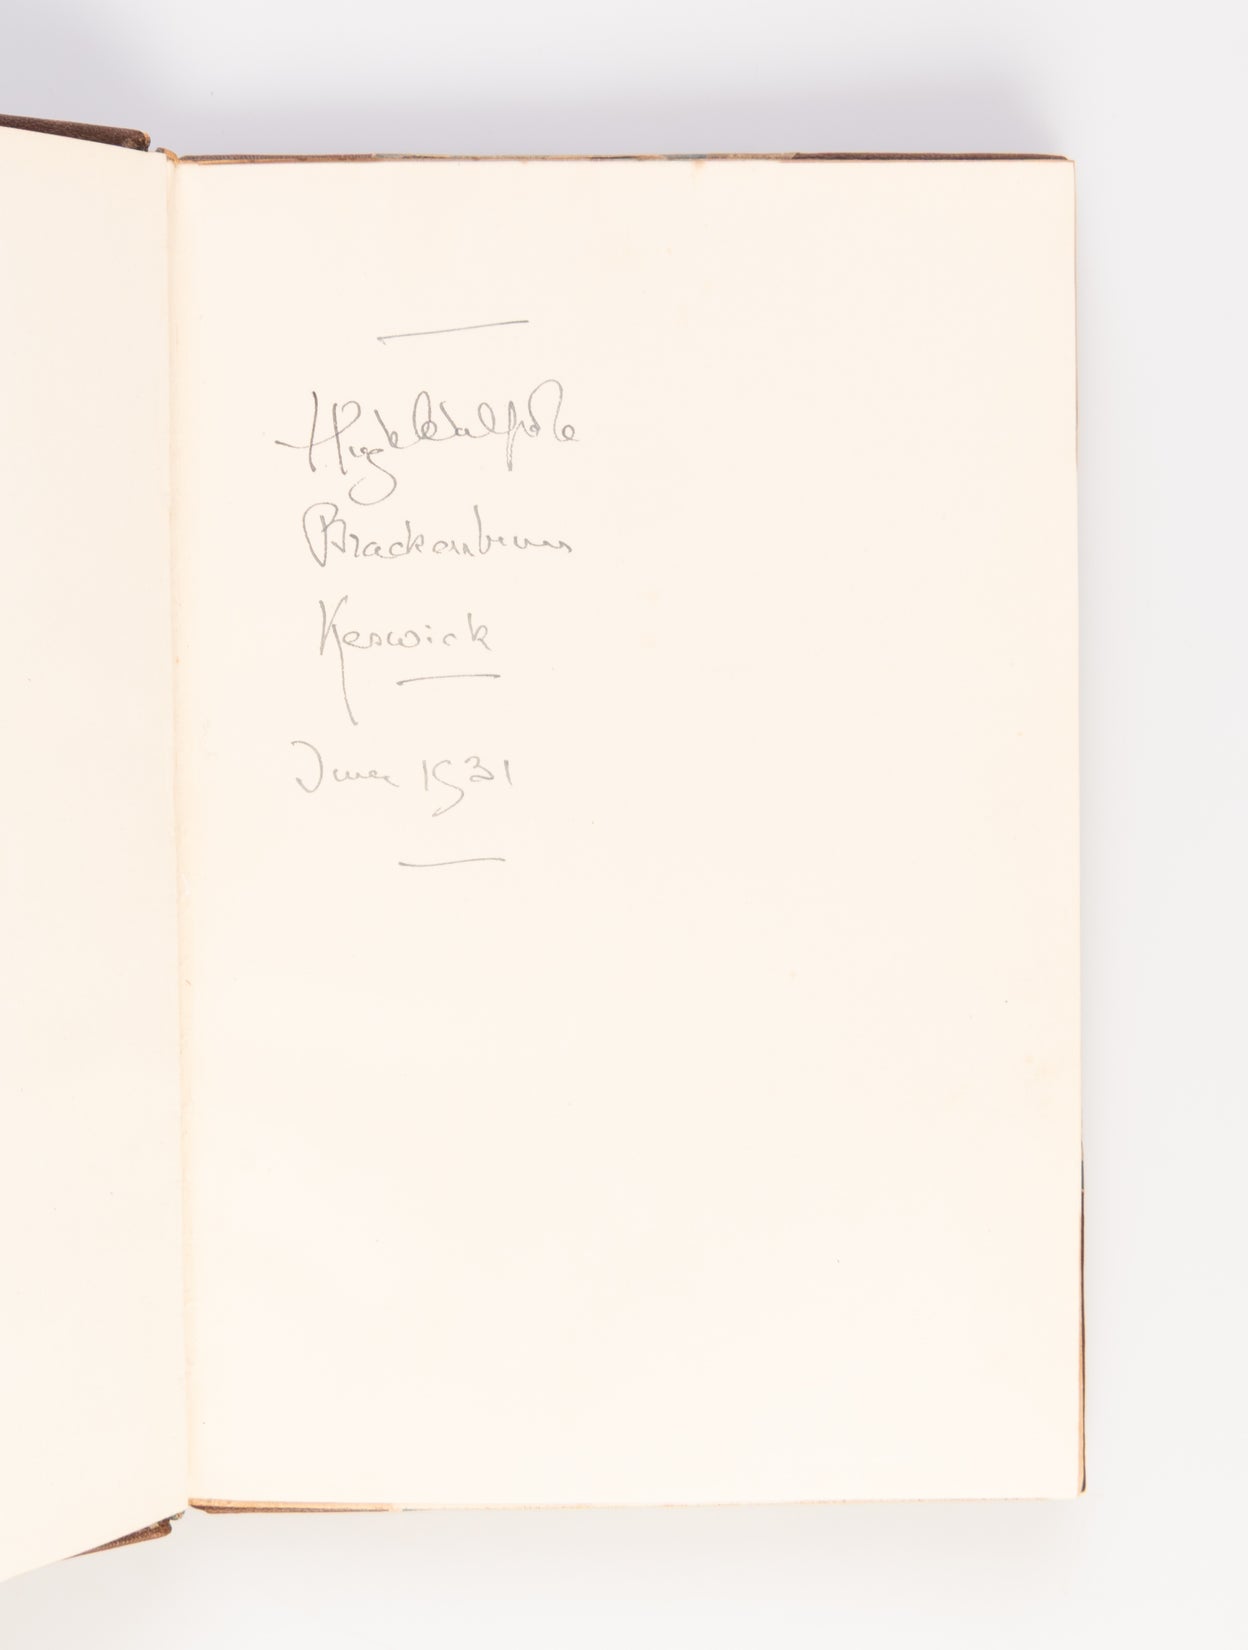 Hugh Walpole
Brackenburn
Keswick
June 1931